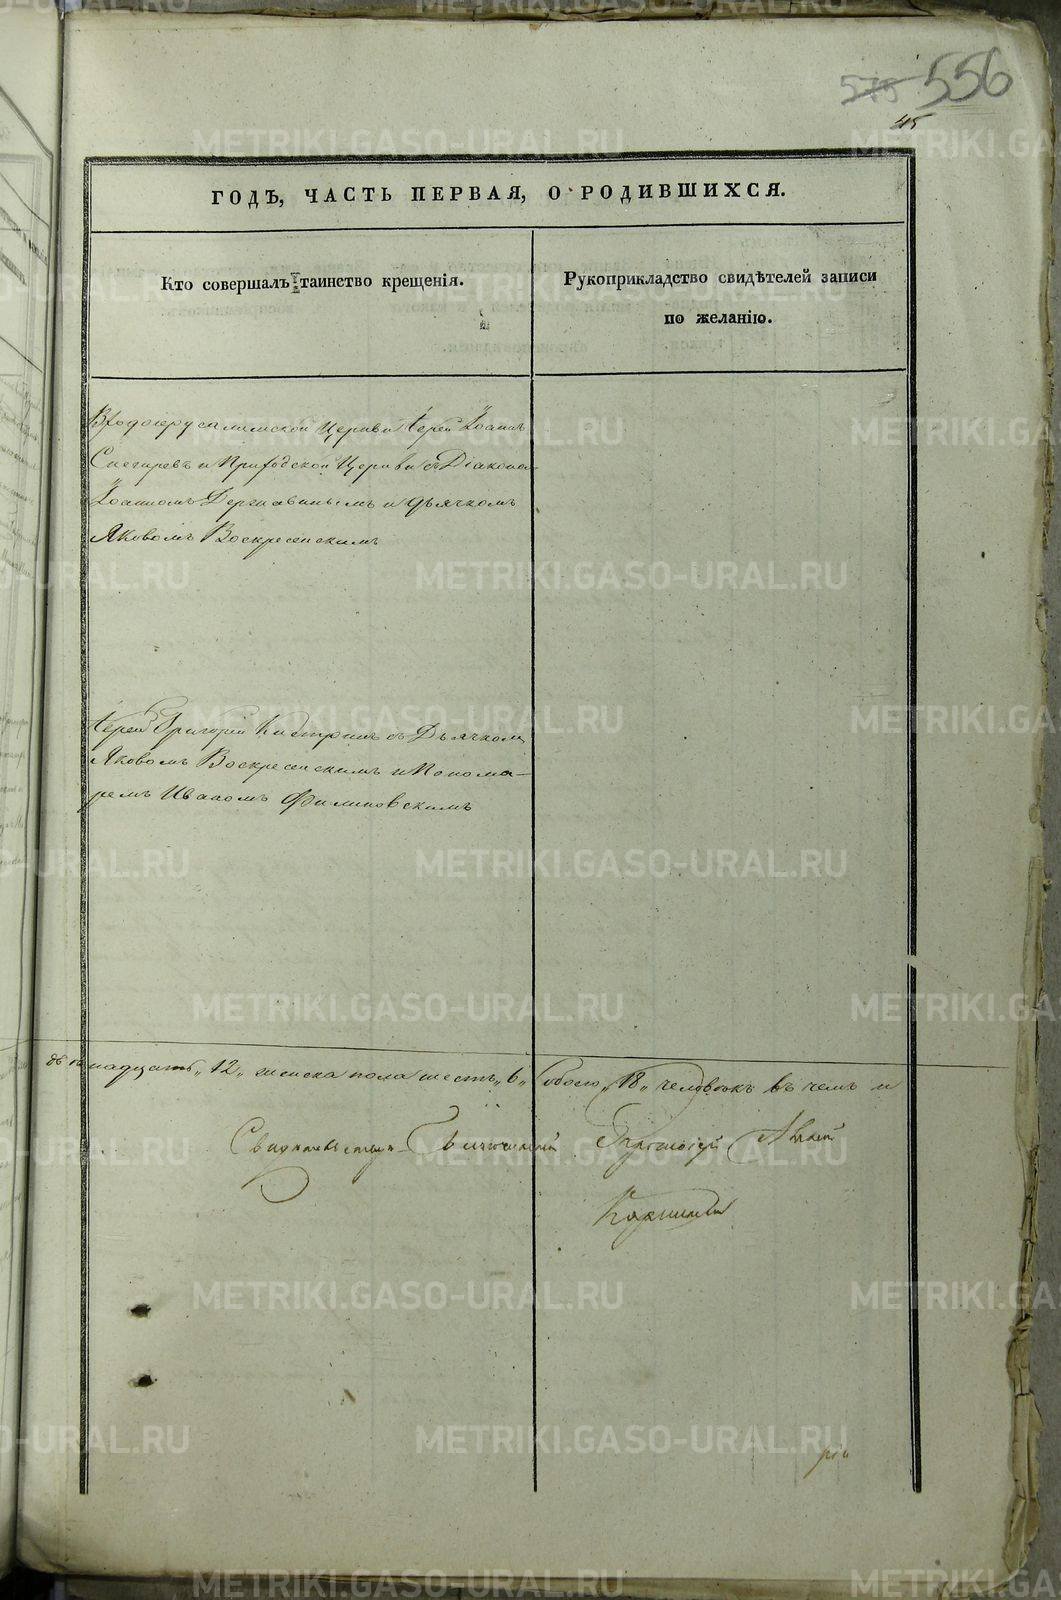 575 556
45
ГОДЪ, ЧАСТЬ ПЕРВАЯ, О РОДИВШИХСЯ.
Кто совершалъ таинство крещенія.
Рукоприкладство свидѣтелей записи
по желанію.
Входоіерусалимской Церкви Іерей Іоаннъ
Снегиревъ и Приходской Церкви съ Діакономъ
Іоанномъ Державинымъ и дьячкомъ
Яковомъ Воскресенскимъ
Іерей Григорій съ Дьячкомъ
Яковомъ Воскресенскимъ и Понома-
ремъ Иваномъ Филиповскимъ
двенадцать „12„ женска пола шесть „6„ обоего „18„ человѣкъ въ чемъ и
Свидѣтельствуетъ
METRIKI.GASO-URAL.RU